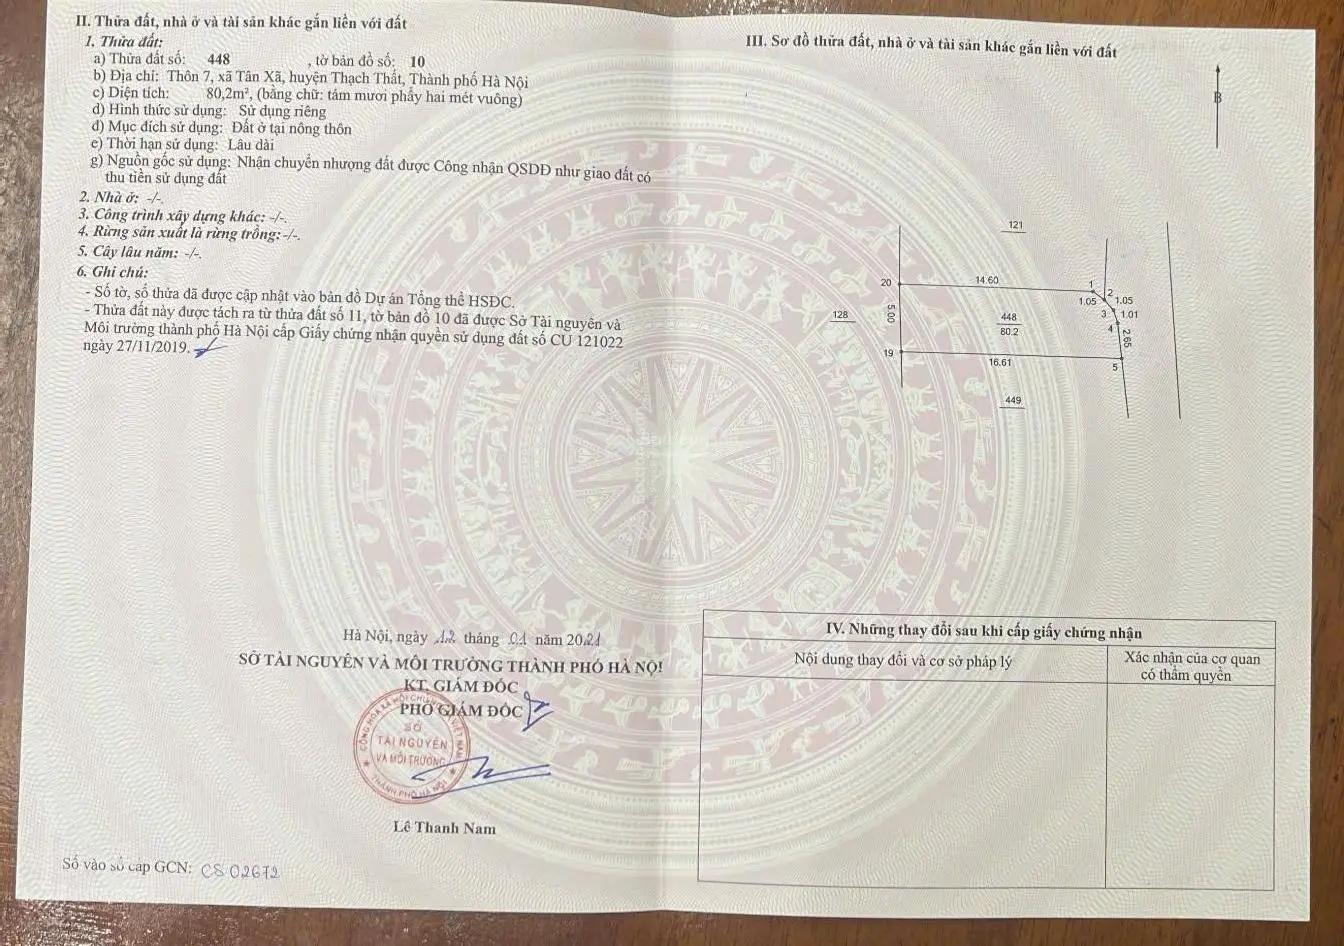 II. Thửa đất, nhà ở và tài sản khác gắn liền với đất
1. Thửa đất:
a) Thửa đất số: 448 , tờ bản đồ số: 10
b) Địa chỉ: Thôn 7, xã Tân Xã, huyện Thạch Thất, Thành phố Hà Nội
c) Diện tích: 80,2m², (bằng chữ: tám mươi phẩy hai mét vuông)
d) Hình thức sử dụng: Sử dụng riêng
đ) Mục đích sử dụng: Đất ở tại nông thôn
e) Thời hạn sử dụng: Lâu dài
g) Nguồn gốc sử dụng: Nhận chuyển nhượng đất được Công nhận QSDĐ như giao đất có
thu tiền sử dụng đất
2. Nhà ở: -/-.
3. Công trình xây dựng khác: -/-.
4. Rừng sản xuất là rừng trồng: -/-.
5. Cây lâu năm: -/-.
6. Ghi chú:
- Số tờ, số thửa đã được cập nhật vào bản đồ Dự án Tổng thể HSĐC.
- Thửa đất này được tách ra từ thửa đất số 11, tờ bản đồ 10 đã được Sở Tài nguyên và
Môi trường thành phố Hà Nội cấp Giấy chứng nhận quyền sử dụng đất số CU 121022
ngày 27/11/2019.
Hà Nội, ngày 12 tháng 01 năm 2021
SỞ TÀI NGUYÊN VÀ MÔI TRƯỜNG THÀNH PHỐ HÀ NỘI
KT. GIÁM ĐỐC
PHÓ GIÁM ĐỐC
SỞ
TÀI NGUYÊN
VÀ MÔI TRƯỜNG
THÀNH PHỐ HÀ NỘI
Lê Thanh Nam
Số vào sổ cấp GCN: CS 02672
III. Sơ đồ thửa đất, nhà ở và tài sản khác gắn liền với đất
B
121
20
14.60
1
2
1.05
1.05
3
1.01
128
5.00
448
80.2
4
2.65
19
16.61
5
449
IV. Những thay đổi sau khi cấp giấy chứng nhận
Nội dung thay đổi và cơ sở pháp lý
Xác nhận của cơ quan
có thẩm quyền